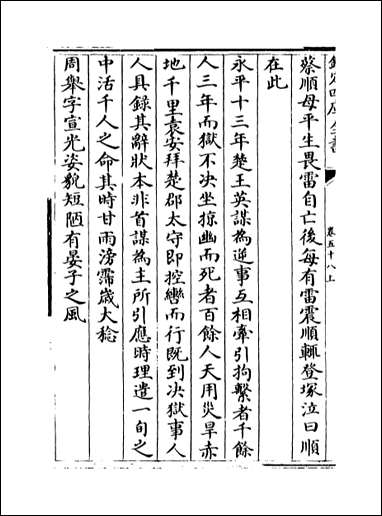 欽定四庫全書
卷五十八上
蔡順母平生畏雷自亡後每有雷震順輒登塚泣曰順
在此
永平十三年楚王英謀為逆事互相牽引拘繫者千餘
人三年而獄不決坐掠幽而死者百餘人天用災旱赤
地千里袁安拜楚郡太守即控轡而行既到決獄事人
人具録其辭狀本非首謀為主所引應時理遣一旬之
中活千人之命其時甘雨滂霈歲大稔
周舉字宣光姿貌短陋有晏子之風